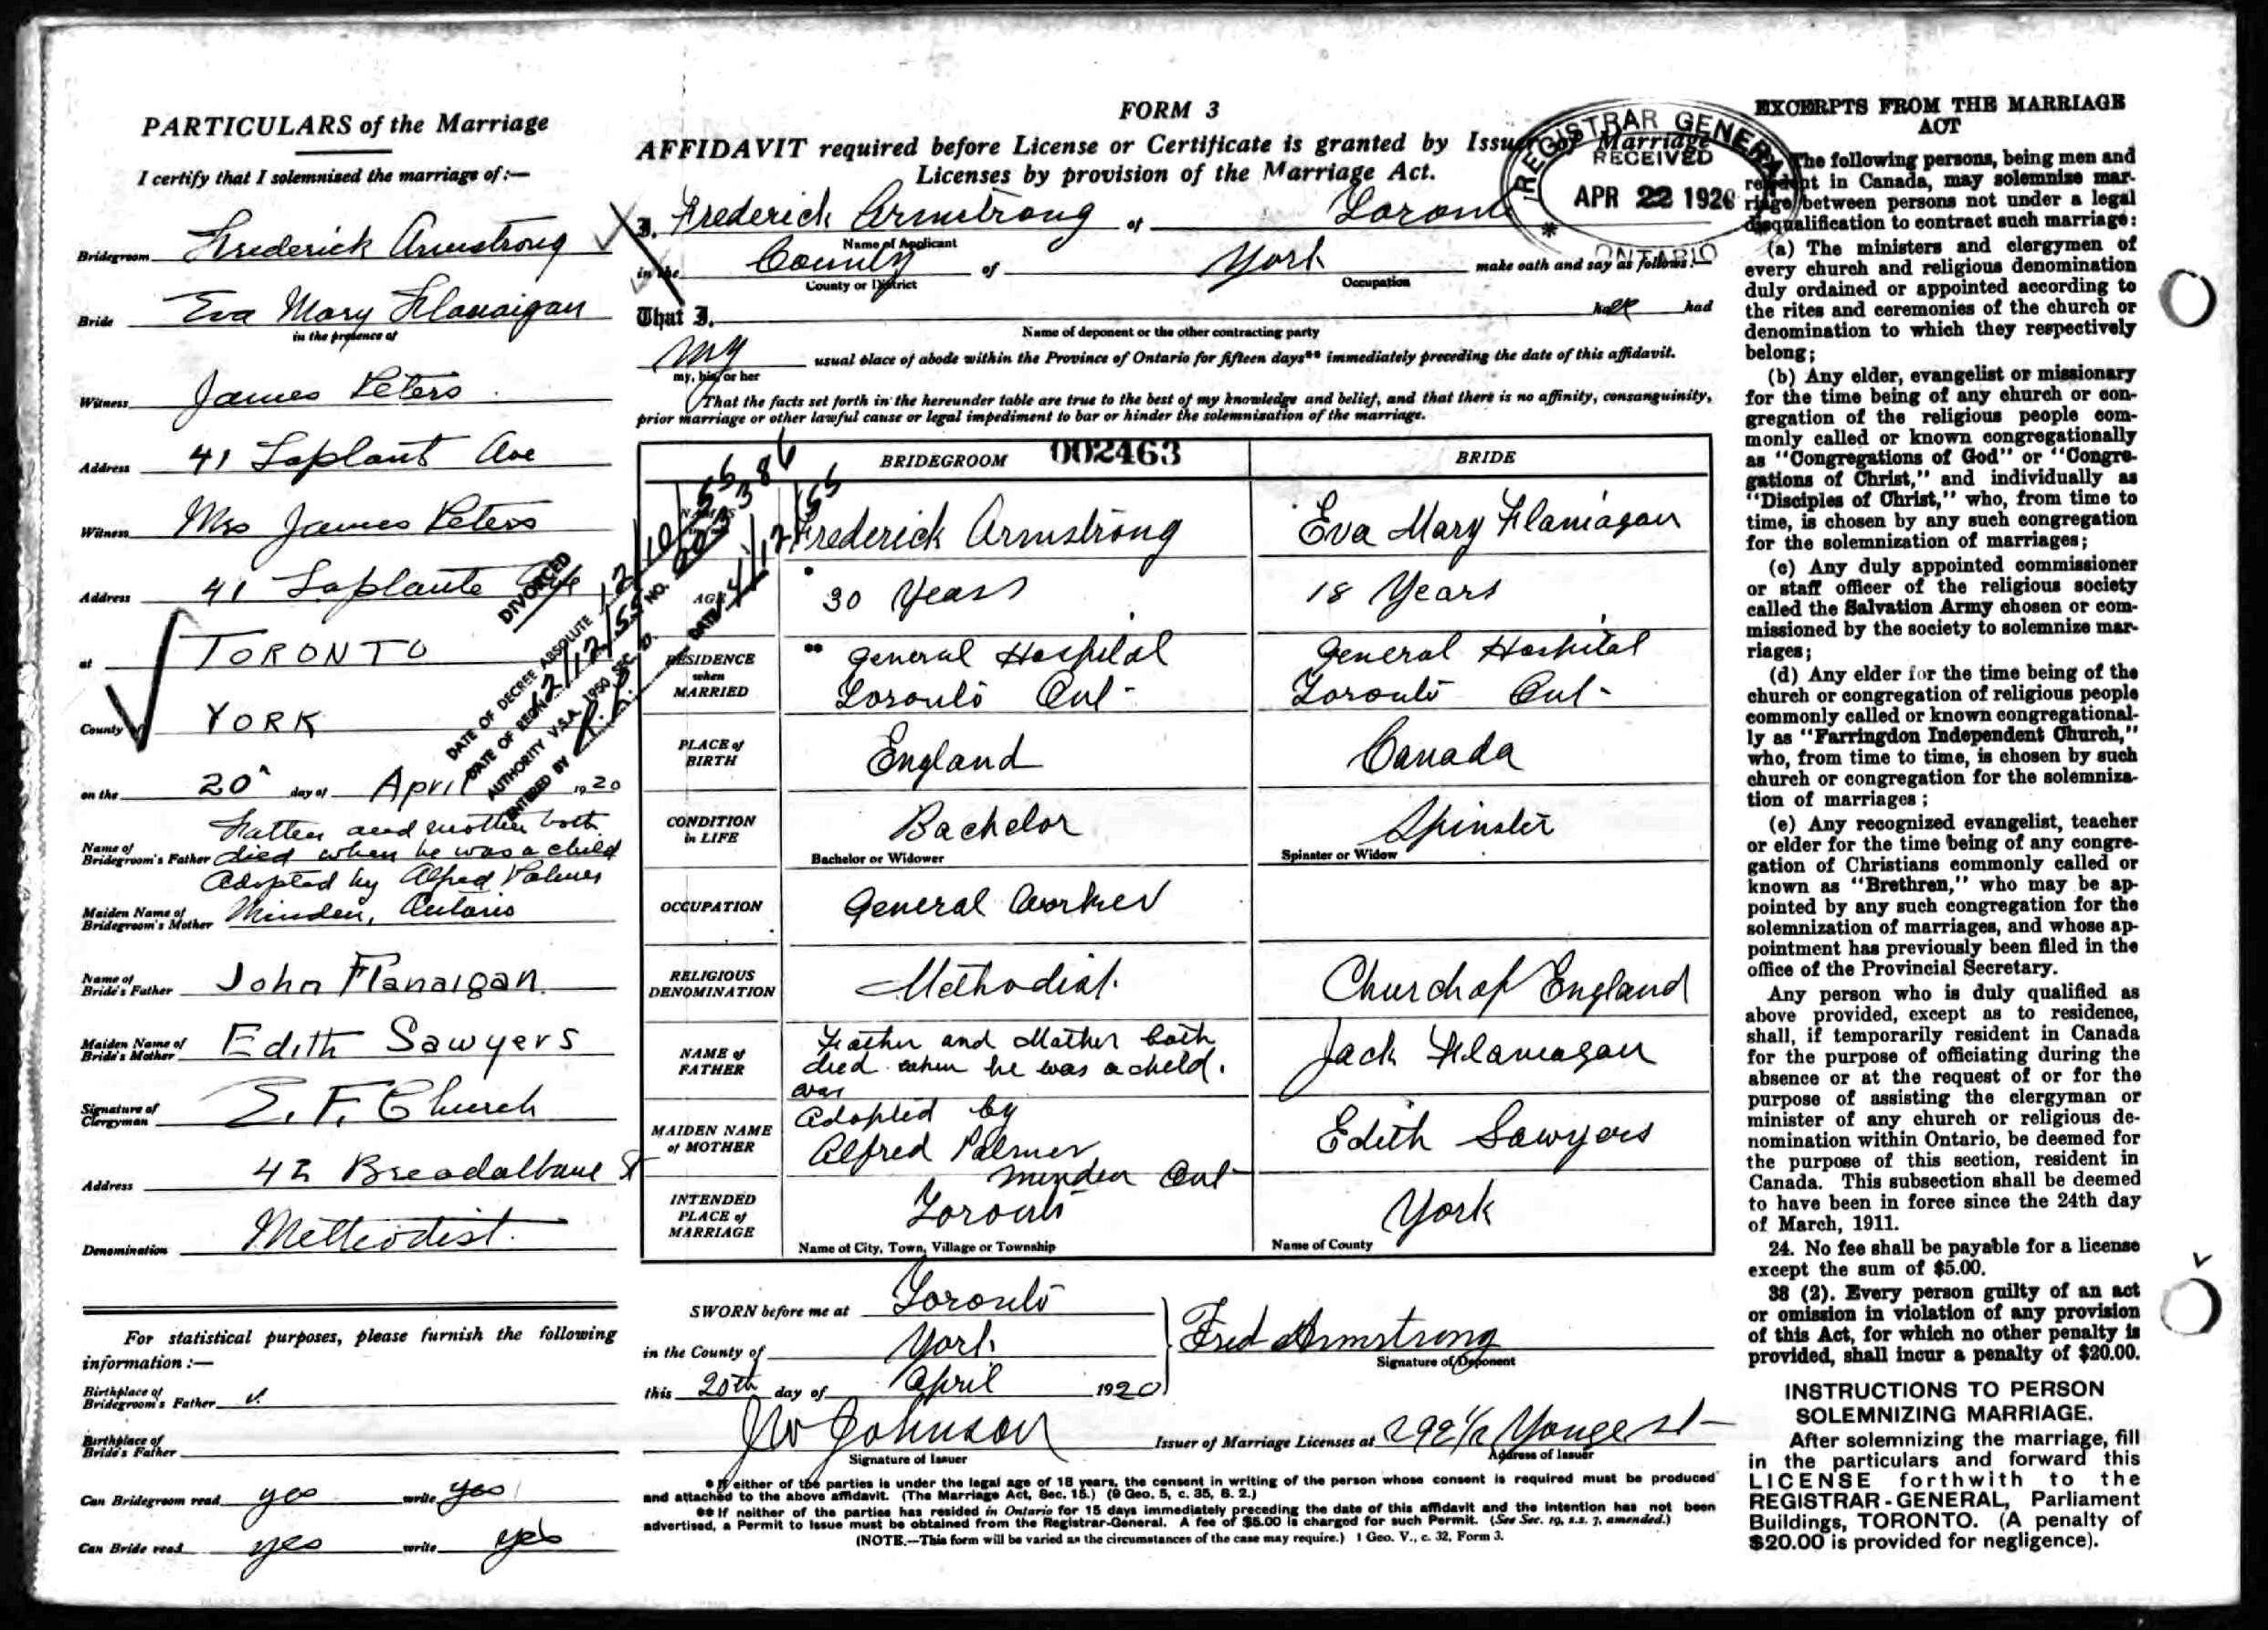 PARTICULARS of the Marriage
I certify that I solemnised the marriage of:—
Bridegroom Frederick Armstrong
Bride Eva Mary Flanaigan
in the presence of
Witness James Peters
Address 41 Laplant Ave
Witness Mrs James Peters
Address 41 Laplante Ave
at TORONTO
County of YORK
on the 20 day of April 1920
Name of Bridegroom's Father
Father and mother both
died when he was a child
Adopted by Alfred Palmer
Maiden Name of Bridegroom's Mother
Minden, Ontario
Name of Bride's Father John Flanaigan
Maiden Name of Bride's Mother Edith Sawyers
Signature of Clergyman E. F. Church
Address 42 Breadalbane St
Denomination Methodist.
For statistical purposes, please furnish the following
information :—
Birthplace of Bridegroom's Father
Birthplace of Bride's Father
Can Bridegroom read yes write yes
Can Bride read yes write yes
DIVORCED
DATE OF DECREE ABSOLUTE 12/10/55
DATE OF REG'N 2/12/55 NO.
AUTHORITY V.S.A. 1950 SEC.
ENTERED BY
DATE
FORM 3
AFFIDAVIT required before License or Certificate is granted by Issuer of Marriage
Licenses by provision of the Marriage Act.
REGISTRAR GENERAL
RECEIVED
APR 22 1920
ONTARIO
I, Frederick Armstrong of Toronto
Name of Applicant
in the County of York make oath and say as follows:—
County or District Occupation
That I, had
Name of deponent or the other contracting party
my usual place of abode within the Province of Ontario for fifteen days** immediately preceding the date of this affidavit.
my, his, or her
That the facts set forth in the hereunder table are true to the best of my knowledge and belief, and that there is no affinity, consanguinity,
prior marriage or other lawful cause or legal impediment to bar or hinder the solemnisation of the marriage.
BRIDEGROOM 002463 BRIDE
NAMES Frederick Armstrong Eva Mary Flanagan
AGE * 30 Years 18 Years
RESIDENCE when MARRIED
** General Hospital General Hospital
Toronto Ont- Toronto Ont-
PLACE of BIRTH England Canada
CONDITION in LIFE Bachelor Spinster
Bachelor or Widower Spinster or Widow
OCCUPATION General Worker
RELIGIOUS DENOMINATION Methodist. Church of England
NAME of FATHER
Father and Mother both
died when he was a child.
was
Jack Flanagan
MAIDEN NAME of MOTHER
Adopted by
Alfred Palmer
Minden Ont
Edith Sawyers
INTENDED PLACE of MARRIAGE Toronto York
Name of City, Town, Village or Township Name of County
SWORN before me at Toronto
in the County of York
this 20th day of April 1920
Fred Armstrong
Signature of Deponent
JW Johnson
Signature of Issuer
Issuer of Marriage Licenses at 292½ Yonge St
Address of Issuer
* If either of the parties is under the legal age of 18 years, the consent in writing of the person whose consent is required must be produced
and attached to the above affidavit. (The Marriage Act, Sec. 15.) (9 Geo. 5, c. 35, S. 2.)
** If neither of the parties has resided in Ontario for 15 days immediately preceding the date of this affidavit and the intention has not been
advertised, a Permit to Issue must be obtained from the Registrar-General. A fee of $5.00 is charged for such Permit. (See Sec. 19, s.s. 7, amended.)
(NOTE.—This form will be varied as the circumstances of the case may require.) 1 Geo. V., c. 32, Form 3.
EXCERPTS FROM THE MARRIAGE
ACT
The following persons, being men and
resident in Canada, may solemnize mar-
riage between persons not under a legal
disqualification to contract such marriage:
(a) The ministers and clergymen of
every church and religious denomination
duly ordained or appointed according to
the rites and ceremonies of the church or
denomination to which they respectively
belong;
(b) Any elder, evangelist or missionary
for the time being of any church or con-
gregation of the religious people com-
monly called or known congregationally
as "Congregations of God" or "Congre-
gations of Christ," and individually as
"Disciples of Christ," who, from time to
time, is chosen by any such congregation
for the solemnization of marriages;
(c) Any duly appointed commissioner
or staff officer of the religious society
called the Salvation Army chosen or com-
missioned by the society to solemnize mar-
riages;
(d) Any elder for the time being of the
church or congregation of religious people
commonly called or known congregational-
ly as "Farringdon Independent Church,"
who, from time to time, is chosen by such
church or congregation for the solemniza-
tion of marriages ;
(e) Any recognized evangelist, teacher
or elder for the time being of any congre-
gation of Christians commonly called or
known as "Brethren," who may be ap-
pointed by any such congregation for the
solemnization of marriages, and whose ap-
pointment has previously been filed in the
office of the Provincial Secretary.
Any person who is duly qualified as
above provided, except as to residence,
shall, if temporarily resident in Canada
for the purpose of officiating during the
absence or at the request of or for the
purpose of assisting the clergyman or
minister of any church or religious de-
nomination within Ontario, be deemed for
the purpose of this section, resident in
Canada. This subsection shall be deemed
to have been in force since the 24th day
of March, 1911.
24. No fee shall be payable for a license
except the sum of $5.00.
38 (2). Every person guilty of an act
or omission in violation of any provision
of this Act, for which no other penalty is
provided, shall incur a penalty of $20.00.
INSTRUCTIONS TO PERSON
SOLEMNIZING MARRIAGE.
After solemnizing the marriage, fill
in the particulars and forward this
LICENSE forthwith to the
REGISTRAR-GENERAL, Parliament
Buildings, TORONTO. (A penalty of
$20.00 is provided for negligence).